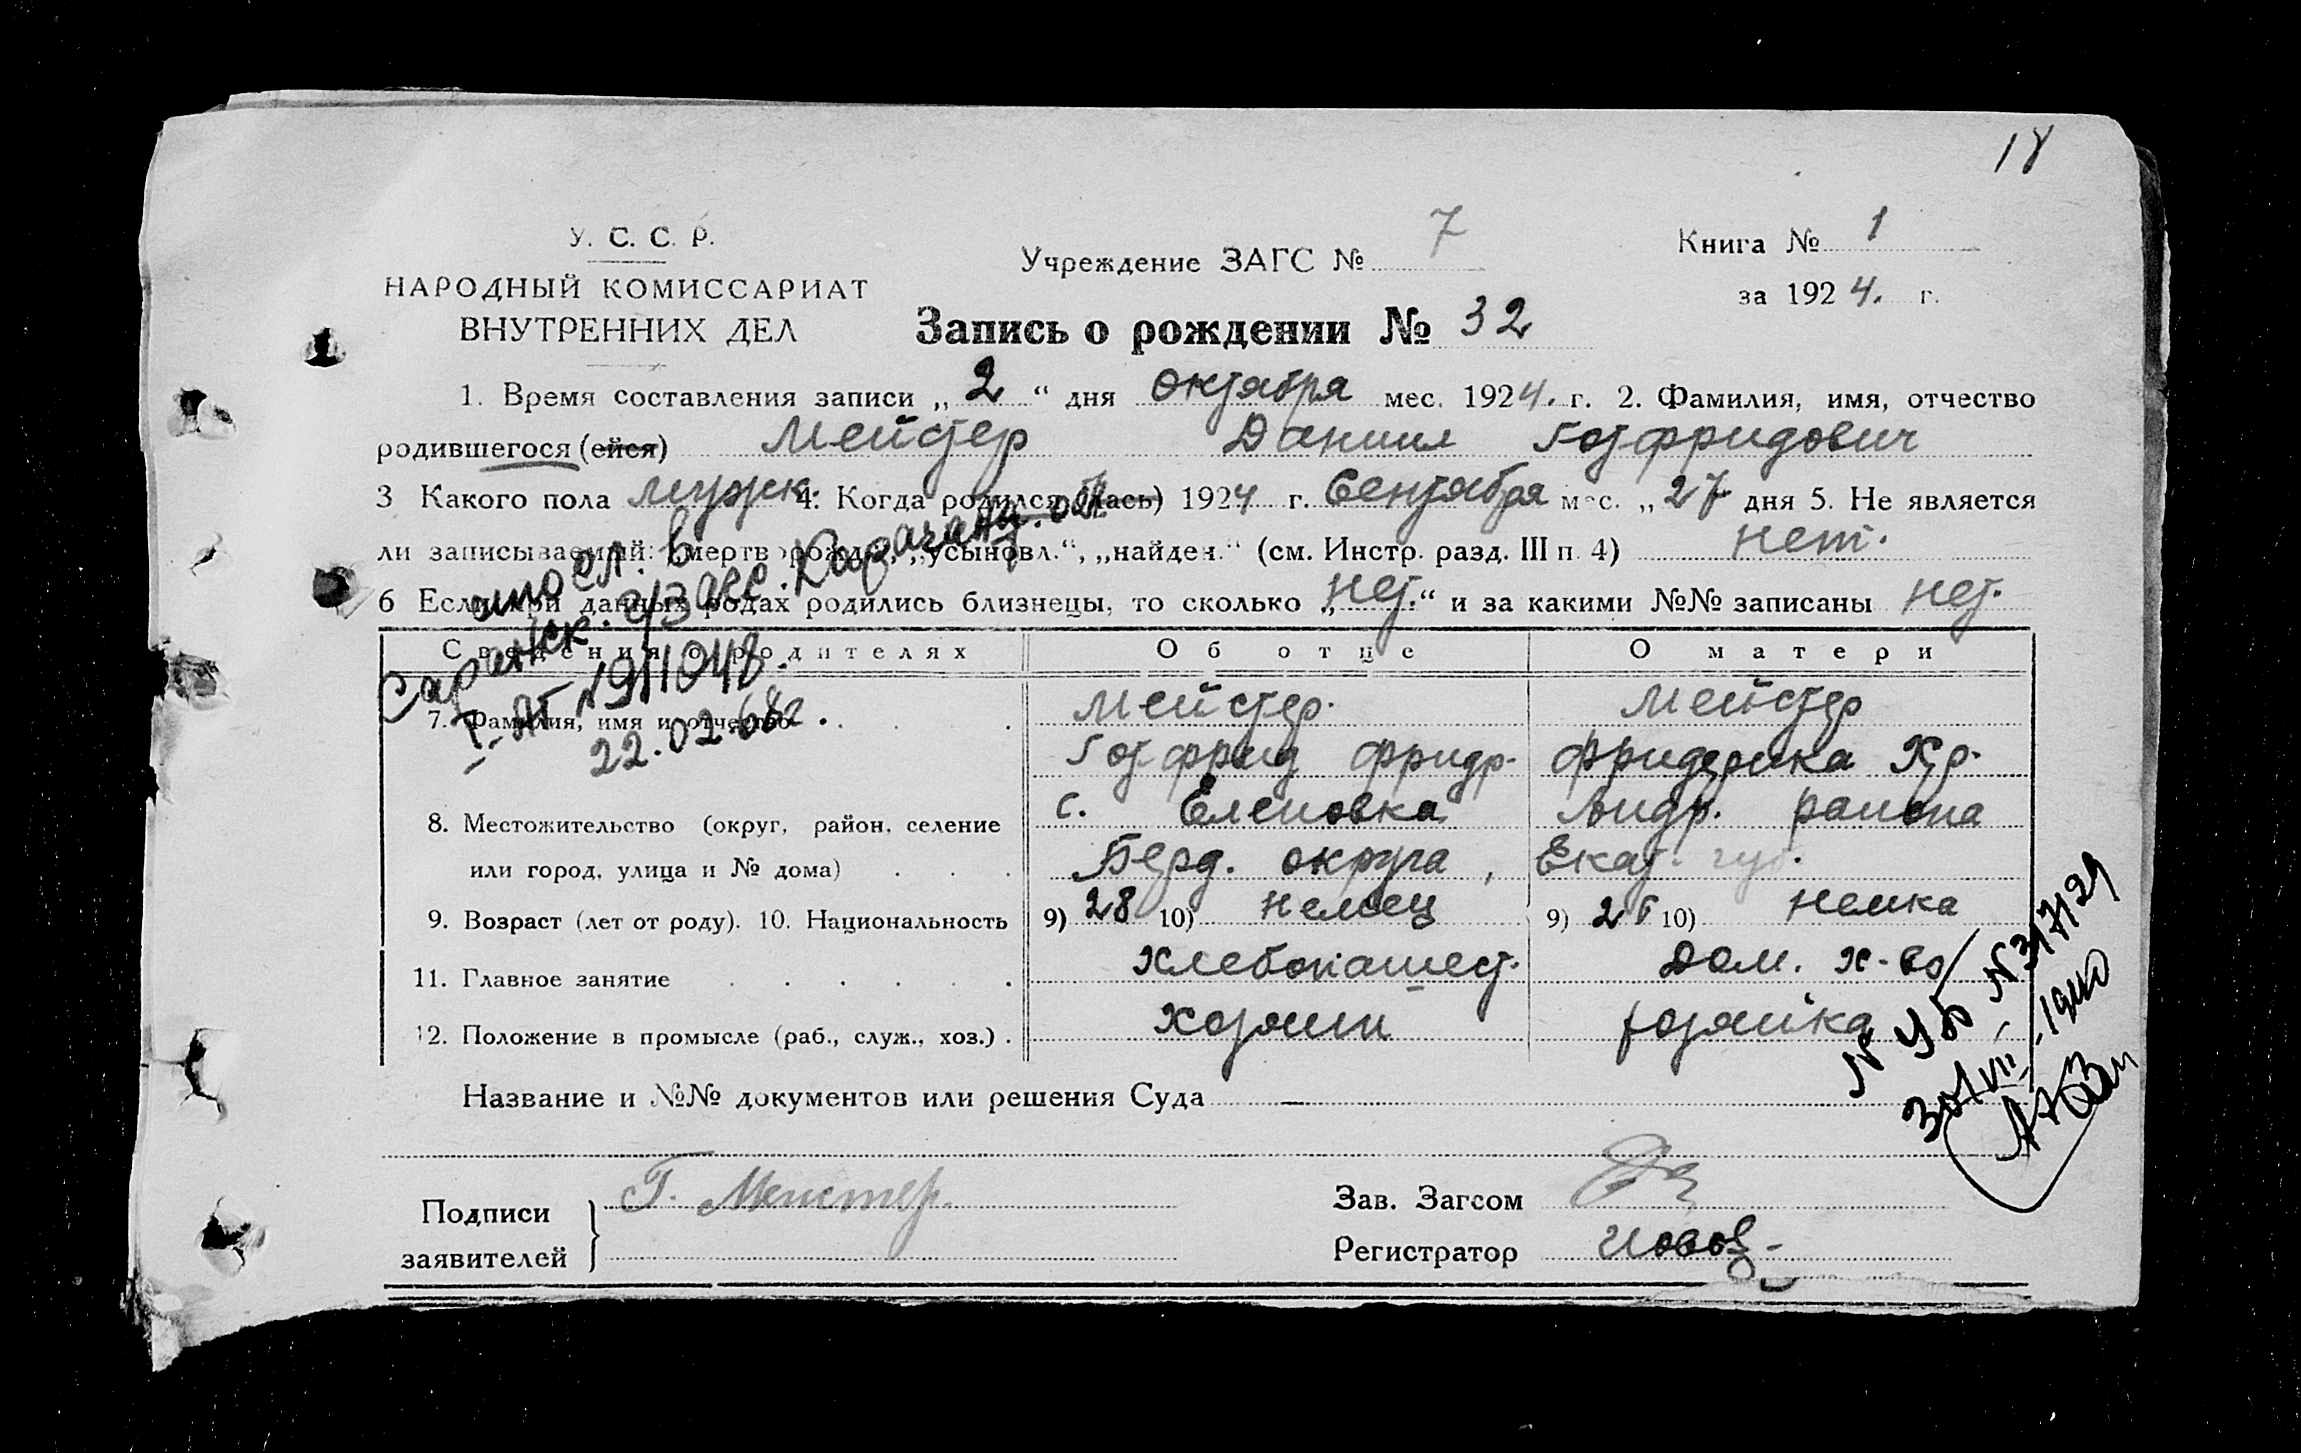 18
У. С. С. Р.
НАРОДНЫЙ КОМИССАРИАТ
ВНУТРЕННИХ ДЕЛ
Учреждение ЗАГС № 7
Книга № 1
за 1924. г.
Запись о рождении № 32
1. Время составления записи „ 2 “ дня Октября мес. 1924. г. 2. Фамилия, имя, отчество
родившегося (ейся) Мейстер Даниил Готфридович
3 Какого пола мужск. 4. Когда родился (лась) 1924 г. Сентября мес. „ 27 дня 5. Не является
ли записываемый: „мертворожд.“, „усыновл.“, „найден.“ (см. Инстр. разд. III п. 4) нет.
6 Если при данных родах родились близнецы, то сколько „ нет. “ и за какими №№ записаны нет.
в
Саранск. г/загс. Караганд. обл
I-АГ №911048.
22.02.68г.
Сведения о родителях Об отце О матери
7. Фамилия, имя и отчество . . . Мейстер. Мейстер
Готфрид Фридр. Фридерика Хр.
8. Местожительство (округ, район, селение с. Еленовка Андр. района
или город, улица и № дома) . . . Берд. округа, Екат. губ.
9. Возраст (лет от роду). 10. Национальность 9) 28 10) немец 9) 10) немка
11. Главное занятие . . . . . . Хлебопашест. Дом. х-во
12. Положение в промысле (раб., служ., хоз.) . хозяин хозяйка
№ УБ №317129
30/VII-1940
Название и №№ документов или решения Суда —
Подписи
заявителей
Г. Мейстер.
Зав. Загсом
Регистратор